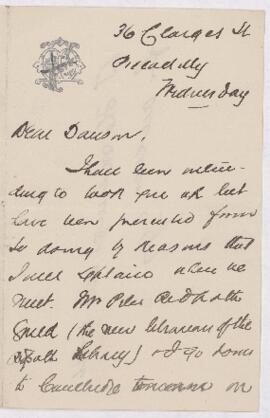 36 Clarges St
Piccadilly
Wednesday
Dear Dawson,
I have been inten-
ding to look you up but
have been prevented from
so doing by reasons that
I will explain when we
meet. Mr Peter
Guild (the new librarian of the
Library) & I go down
to Cambridge tomorrow on